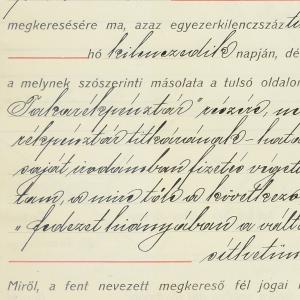 megkeresésére ma, azaz egyezerkilencszáz
hó kilenczedik napján, dé
a melynek szószerinti másolata a tulsó oldalon
Takarékpénztár" részére, m
rékpénztár titkárának - hata
saját irodámban fizetés végett
tam, s mire tőle a következő
„fedezet hiányában a vált
Miről, a fent nevezett megkereső fél jogai